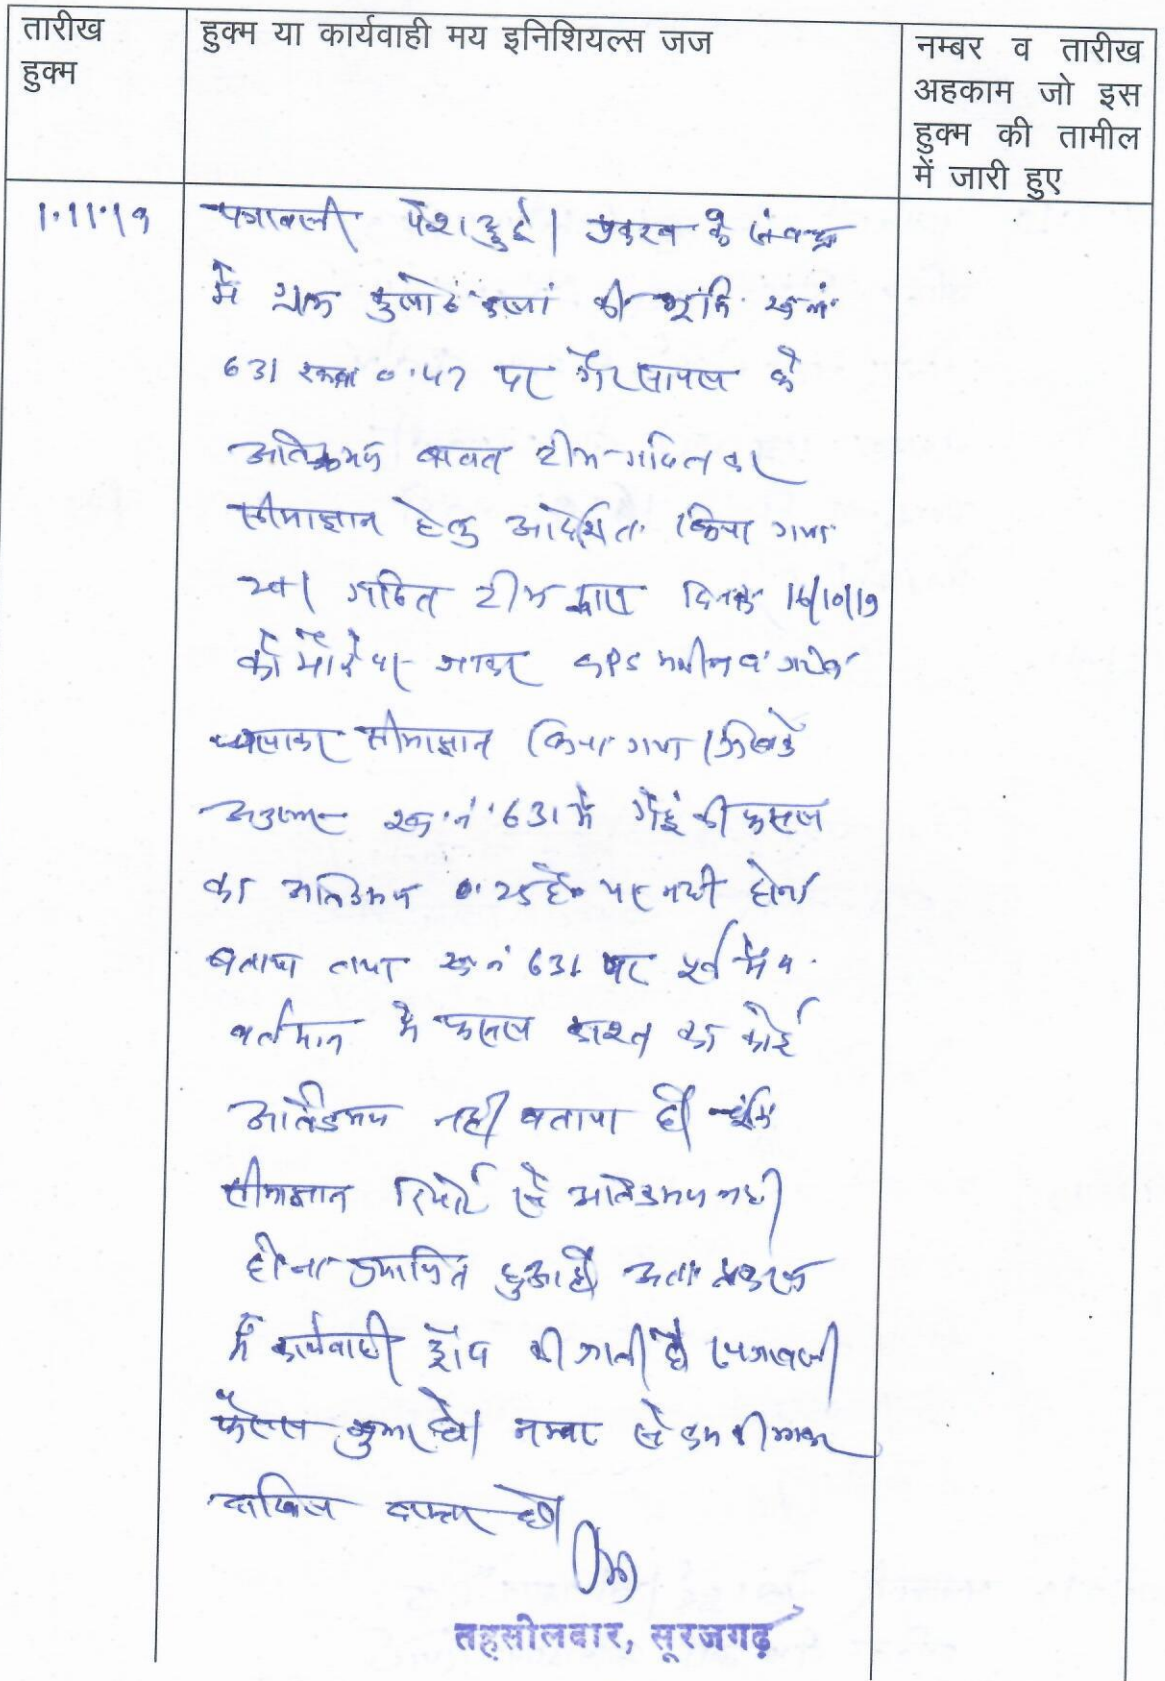 तारीख
हुक्म
हुक्म या कार्यवाही मय इनिशियल्स जज
नम्बर व तारीख
अहकाम जो इस
हुक्म की तामील
में जारी हुए
1.11.19
पत्रावली पेश हुई। प्रकरण के संबन्ध
में ग्राम कलां की भूमि ख.नं.
631 रकबा 0.47 पर गैर सायल के
अतिक्रमण बाबत टीम गठित कर
सीमाज्ञान हेतु आदेशित किया गया
था। गठित टीम द्वारा दिनांक 16/10/19
को मौके पर जाकर GPS मशीन व
चलाकर सीमाज्ञान किया गया। जिसके
अनुसार ख.नं. 631 में गेहूं की फसल
का अतिक्रमण 0. है० पर नही होना
बताया तथा ख.नं 631 पर पूर्व में व
वर्तमान में फसल काश्त का कोई
अतिक्रमण नही बताया है। चूंकि
सीमाज्ञान रिपोर्ट से अतिक्रमण नही
होना प्रमाणित हुआ है। अतः प्रकरण
में कार्यवाही ड्रॉप की जाती है। पत्रावली
फैसल शुमार हो। नम्बर से कम की जाकर
दाखिल दफ्तर हो।
तहसीलदार, सूरजगढ़